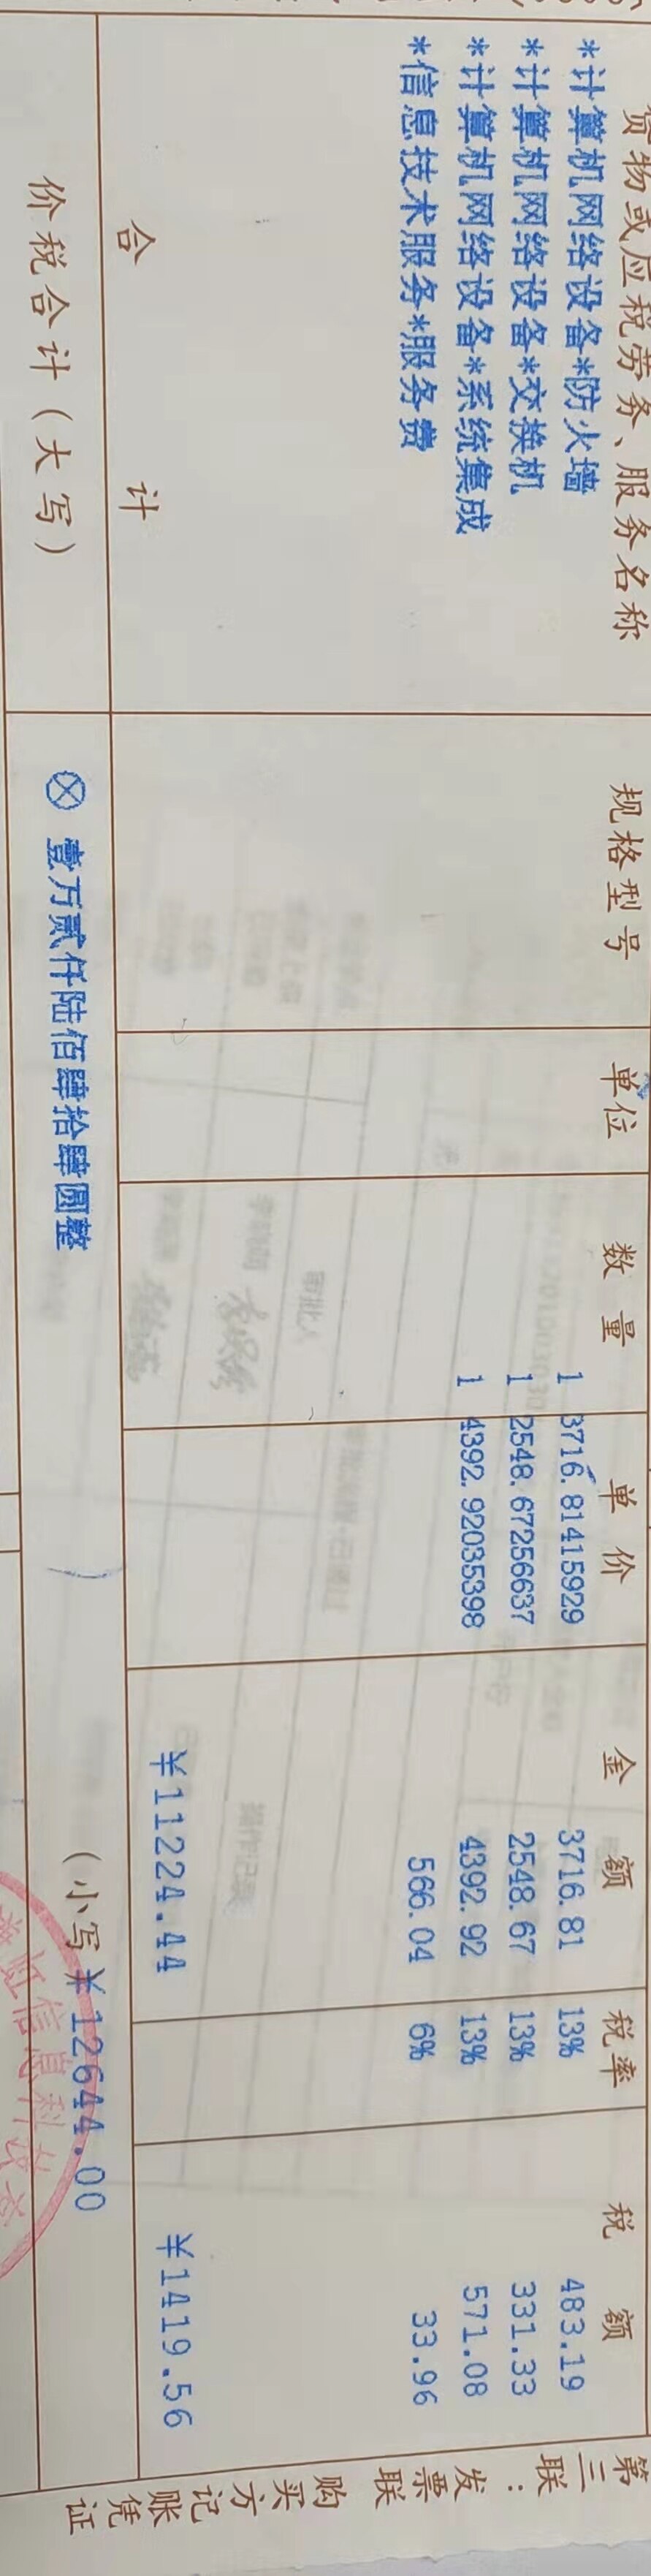 货物或应税劳务、服务名称 规格型号 单位 数量 单价 金额 税率 税额
*计算机网络设备*防火墙 1 3716.81415929 3716.81 13% 483.19
*计算机网络设备*交换机 1 2548.67256637 2548.67 13% 331.33
*计算机网络设备*系统集成 1 4392.92035398 4392.92 13% 571.08
*信息技术服务*服务费 566.04 6% 33.96
合计 ¥11224.44 ¥1419.56
价税合计(大写) ⊗ 壹万贰仟陆佰肆拾肆圆整 (小写 ¥12644.00
第三联:发票联 购买方记账凭证
信息科技